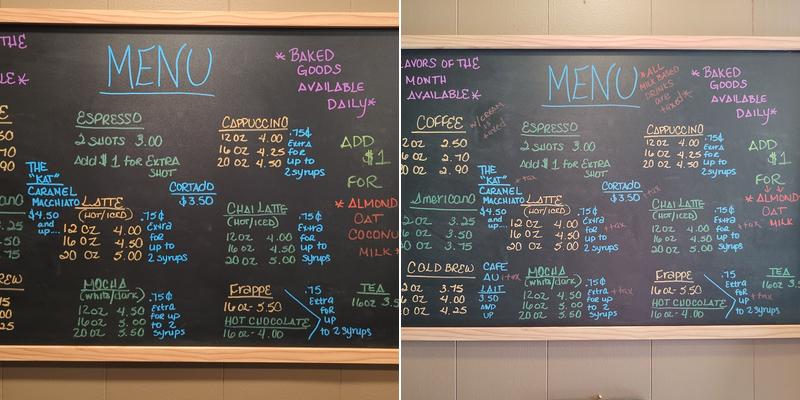 THE
LE*
MENU
* BAKED
GOODS
AVAILABLE
DAILY*
ESPRESSO
2 SHOTS 3.00
Add $1 for Extra
SHOT
CAPPUCCINO
12 OZ 4.00
16 OZ 4.25
20 OZ 4.50
.75¢
Extra
for
up to
2 syrups
ADD
$1
FOR
* ALMOND
OAT
COCONU
MILK *
THE
"KAT"
CARAMEL
MACCHIATO
$4.50
and
up...
LATTE
(HOT/ICED)
12 OZ 4.00
16 OZ 4.50
20 OZ 5.00
.75¢
Extra
for
up to
2 Syrups
CORTADO
$3.50
CHAI LATTE
(HOT/ICED)
12OZ 4.00
16 OZ 4.50
20 OZ 5.00
.75¢
Extra
for
up to
2 syrups
MOCHA
(white/dark)
12oz 4.50
16 oz 5.00
20 oz 5.50
.75¢
Extra
for up
to 2
syrups
Frappe
16 oz- 5.50
HOT CHOCOLATE
16 oz- 4.00
.75
Extra
for
up
to 2 syrups
TEA
16oz 3.
ano
3.25
.50
3.75
EW
AVORS OF THE
MONTH
AVAILABLE*
MENU
*ALL
MILK BASED
DRINKS
are
taxed*
* BAKED
GOODS
AVAILABLE
DAILY*
COFFEE
2 OZ 2.50
6 OZ 2.70
0 OZ 2.90
w/CREAM
is
taxed
ESPRESSO
2 SHOTS 3.00
Add $1 for Extra
SHOT
CAPPUCCINO
12 OZ 4.00
16 OZ 4.25
20 OZ 4.50
.75¢
Extra
for
up to
2 syrups
ADD
$1
FOR
* ALMOND
OAT
MILK
Americano
2 OZ 3.25
6 OZ 3.50
0 OZ 3.75
THE
"KAT"
CARAMEL
MACCHIATO
$4.50
and
up...
+tax
LATTE
(HOT/ICED)
12 OZ 4.00
16 OZ 4.50
20 OZ 5.00
.75¢
Extra
for
up to
2 Syrups
+tax
CORTADO
$3.50
+tax
CHAI LATTE
(HOT/ICED)
12OZ 4.00
16 OZ 4.50
20 OZ 5.00
.75¢
Extra
for
up to
2 syrups
+tax
COLD BREW
2 OZ 3.75
6 OZ 4.00
0 OZ 4.25
CAFE
AU
LAIT
3.50
AND
UP
+tax
MOCHA
(white/dark)
12oz 4.50
16 oz 5.00
20 oz 5.50
.75¢
Extra
for up
to 2
syrups
+tax
Frappe
16 oz- 5.50
HOT CHOCOLATE
16 oz- 4.00
.75
Extra
for
up
to 2 syrups
+tax
TEA
16oz 3.5